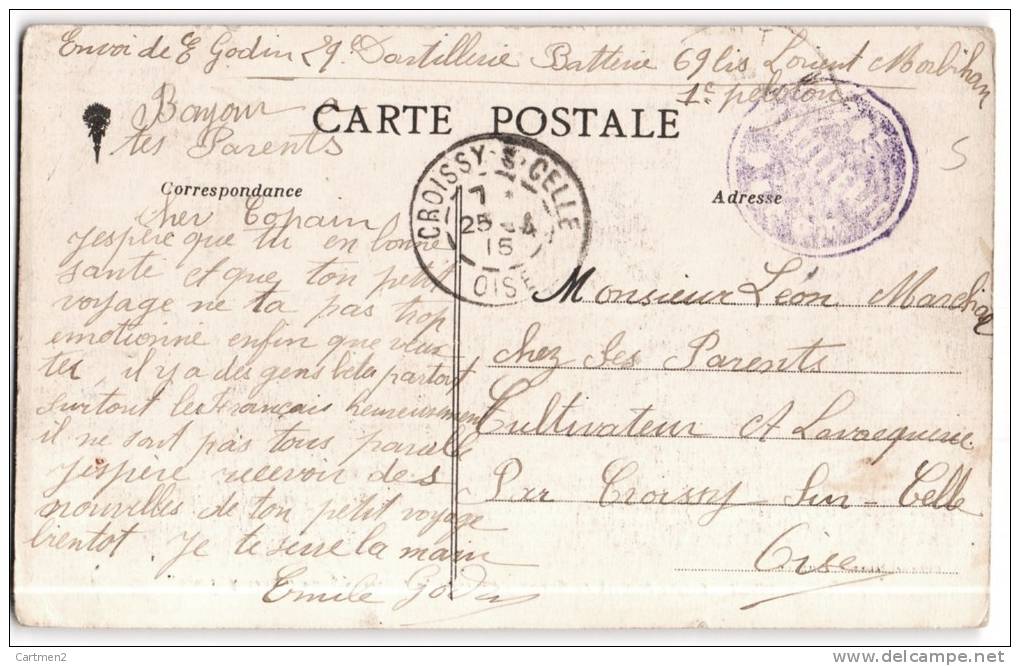 Envoi de E Godin 29e Dartillerie Batterie 69 bis Lorient Morbihan
1e peloton
Bonjour
tes Parents
CARTE POSTALE
Correspondance
Adresse
CROISSY-S-CELLE
7 *
25 -4
15
OISE
5
Cher Copain
Jespère que tu en bonne
santé et que ton petit
voyage ne ta pas trop
emotionné enfin que veux
tu, il y a des gens beta partout
surtout les Français heureusement
il ne sont pas tous pareille
Jespère recevoir des
nouvelles de ton petit voyage
bientot. Je te serre la main
Emile Godin
Monsieur Léon
chez ses Parents
Cultivateur A Lavacquerie
Par Croissy Sur-Celle
Oise
Cartmen2
delcampe.net